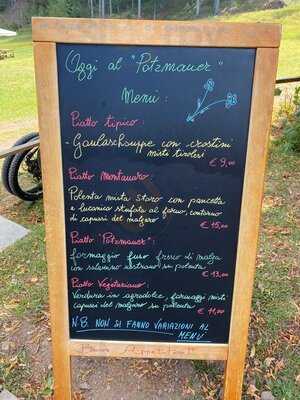 Oggi al "Potzmauer"
Menù:
Piatto tipico:
- Gaulaschsuppe con crostini
misti tirolesi
€ 9,00
Piatto Montanaro:
Polenta mista storo con pancetta
e lucanica stufata al forno, contorno
di capussi del malgaro
€ 15,00
Piatto "Potzmauer":
formaggio fuso fresco di malga
con salamino nostrano su polenta
€ 13,00
Piatto Vegetariano:
Verdura in agrodolce, formaggi misti
capussi del malgaro su polenta
€ 11,00
N.B. NON SI FANNO VARIAZIONI AL
MENU